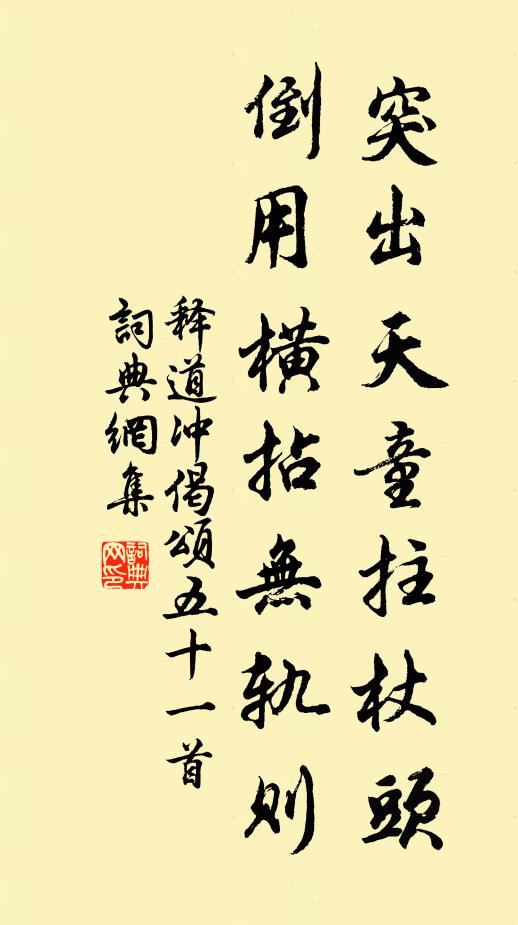 突出天童拄杖頭
倒用橫拈無軌則
释道冲偈頌五十一首
詞典網集
詞典网印